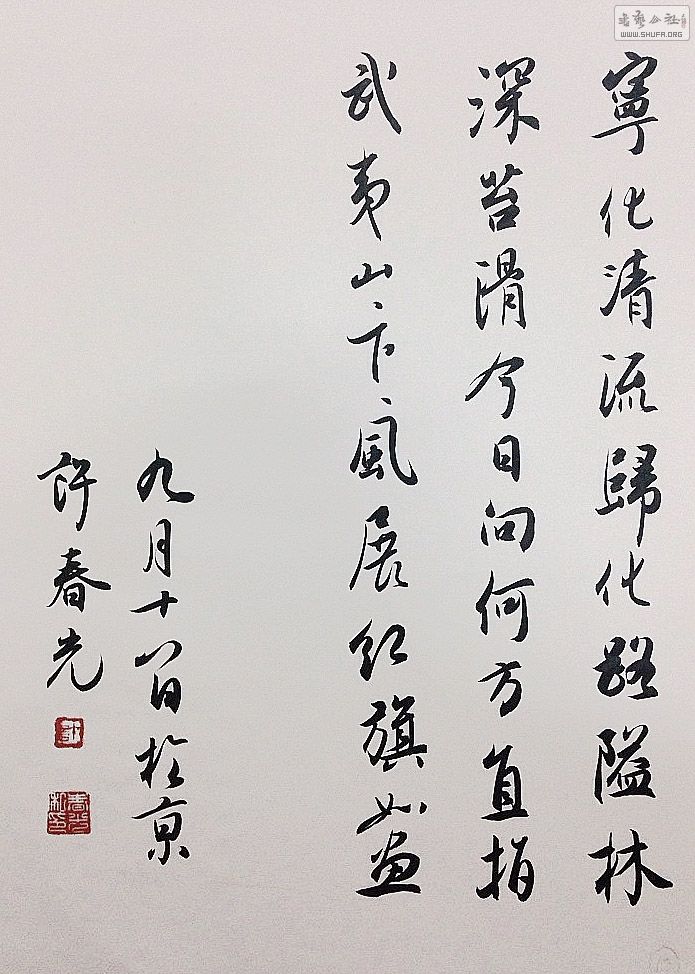 寧化清流歸化路隘林
深苔滑今日向何方直指
武夷山下風展紅旗如畫
九月十八日於京
許春光
書藝公社
WWW.SHUFA.ORG